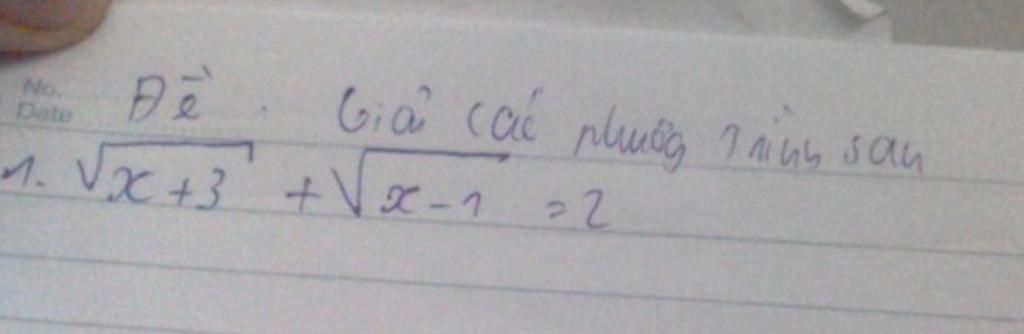 No.
Date
Đề. Giải các phương trình sau
1. √x+3 + √x-1 = 2